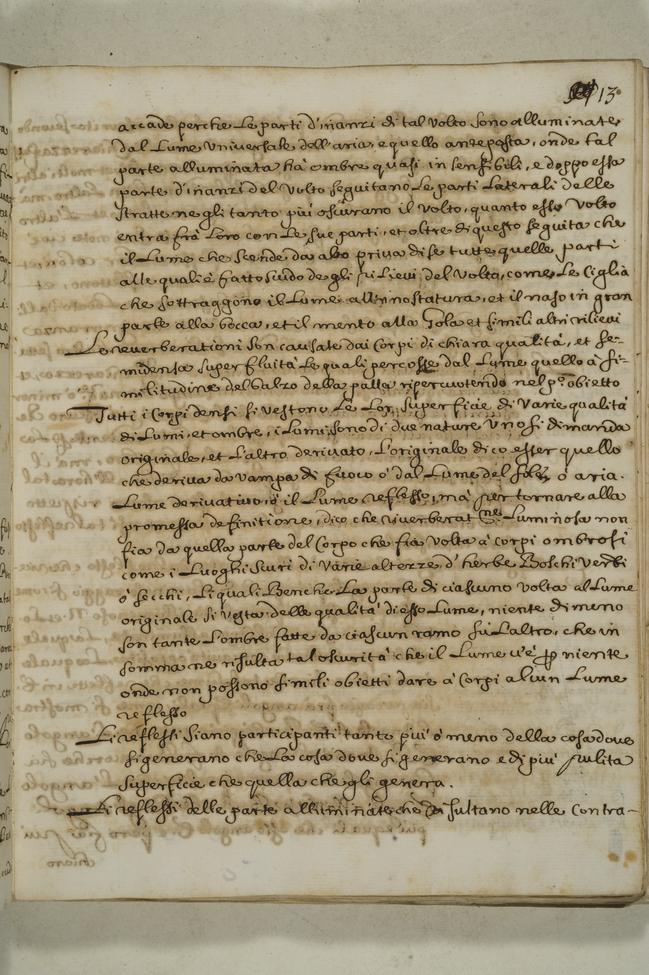 13
accade perche le parti d'inanzi di tal volto sono alluminate
dal lume universale dell'aria, e quello anteposta, onde tal
parte alluminata hà ombre quasi insensibili, e doppo essa
parte d'inanzi del volto seguitano le parti laterali delle
stratte ne gli tanto più oscurano il volto, quanto esso volto
entra frà loro con le sue parti, et oltre di questo seguita che
il lume che scende da alto priva di se tutte quelle parti
alle quali è fatto scudo de gli rilievi del volto, come le ciglia
che sottraggono il lume all'innostatura, et il naso in gran
parte alla bocca, et il mento alla gola et simili altri rilievi
Le reverberationi son causate dai corpi di chiara qualità, et se-
midensa superfluità le quali percosse dal lume quello à si-
militudine del balzo della palla ripercuotendo nel po obietto
Tutti i corpi densi si vestono le lor superficie di varie qualità
di lumi, et ombre, i lumi sono di due nature uno si dimanda
originale, et l'altro derivato, l'originale dico esser quello
che deriva da vampa di fuoco ò dal lume del sole, ò aria.
Lume derivativo, è il lume reflesso, mà per tornare alla
promessa definitione, dico che riverberatne luminosa non
fia da quella parte del corpo che fia volta à corpi ombrosi
come i luoghi scuri di varie altezze d'herbe Boschi verdi
ò secchi, li quali benche la parte di ciascuno volta al lume
originale si vesta della qualità d'esso lume, niente di meno
son tante l'ombre fatte da ciascun ramo sù l'altro, che in
somma ne risulta tal oscurità che il lume v'è ꝑ niente
onde non possono simili obietti dare à corpi alcun lume
reflesso
Li reflessi siano participanti tanto più ò meno della cosa dove
si generano che la cosa dove si generano e di più pulita
superficie che quella che gli genera.
Li reflessi delle parte alluminate che risultano nelle contra-